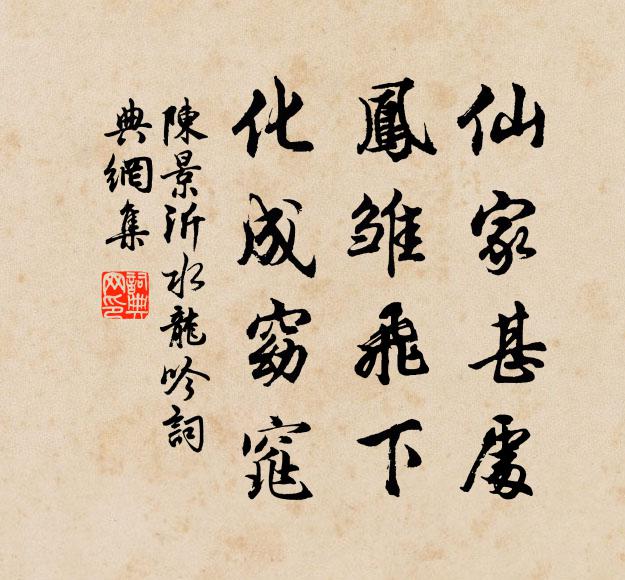 仙家甚處
鳳雏飛下
化成窈窕
陳景沂水龍吟詞
典網集
詞典
网印